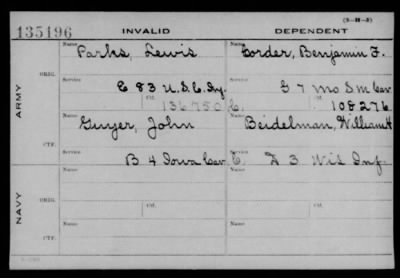 (3-H-5)
135196 INVALID DEPENDENT
ARMY
ORIG.
Name Name
Parks, Lewis Corder, Benjamin F.
Service Service
E 83 U.S.C. Inf. G 7 Mo S M Cav
Ctf. Ctf.
136750 C. 108276
CTF.
Name Name
Guyer, John Beidelman, William H
Service Service
B 4 Iowa Cav. C. D 3 Wis Inf.
NAVY
ORIG.
Name Name
Service Ctf. Service Ctf.
CTF.
Name Name